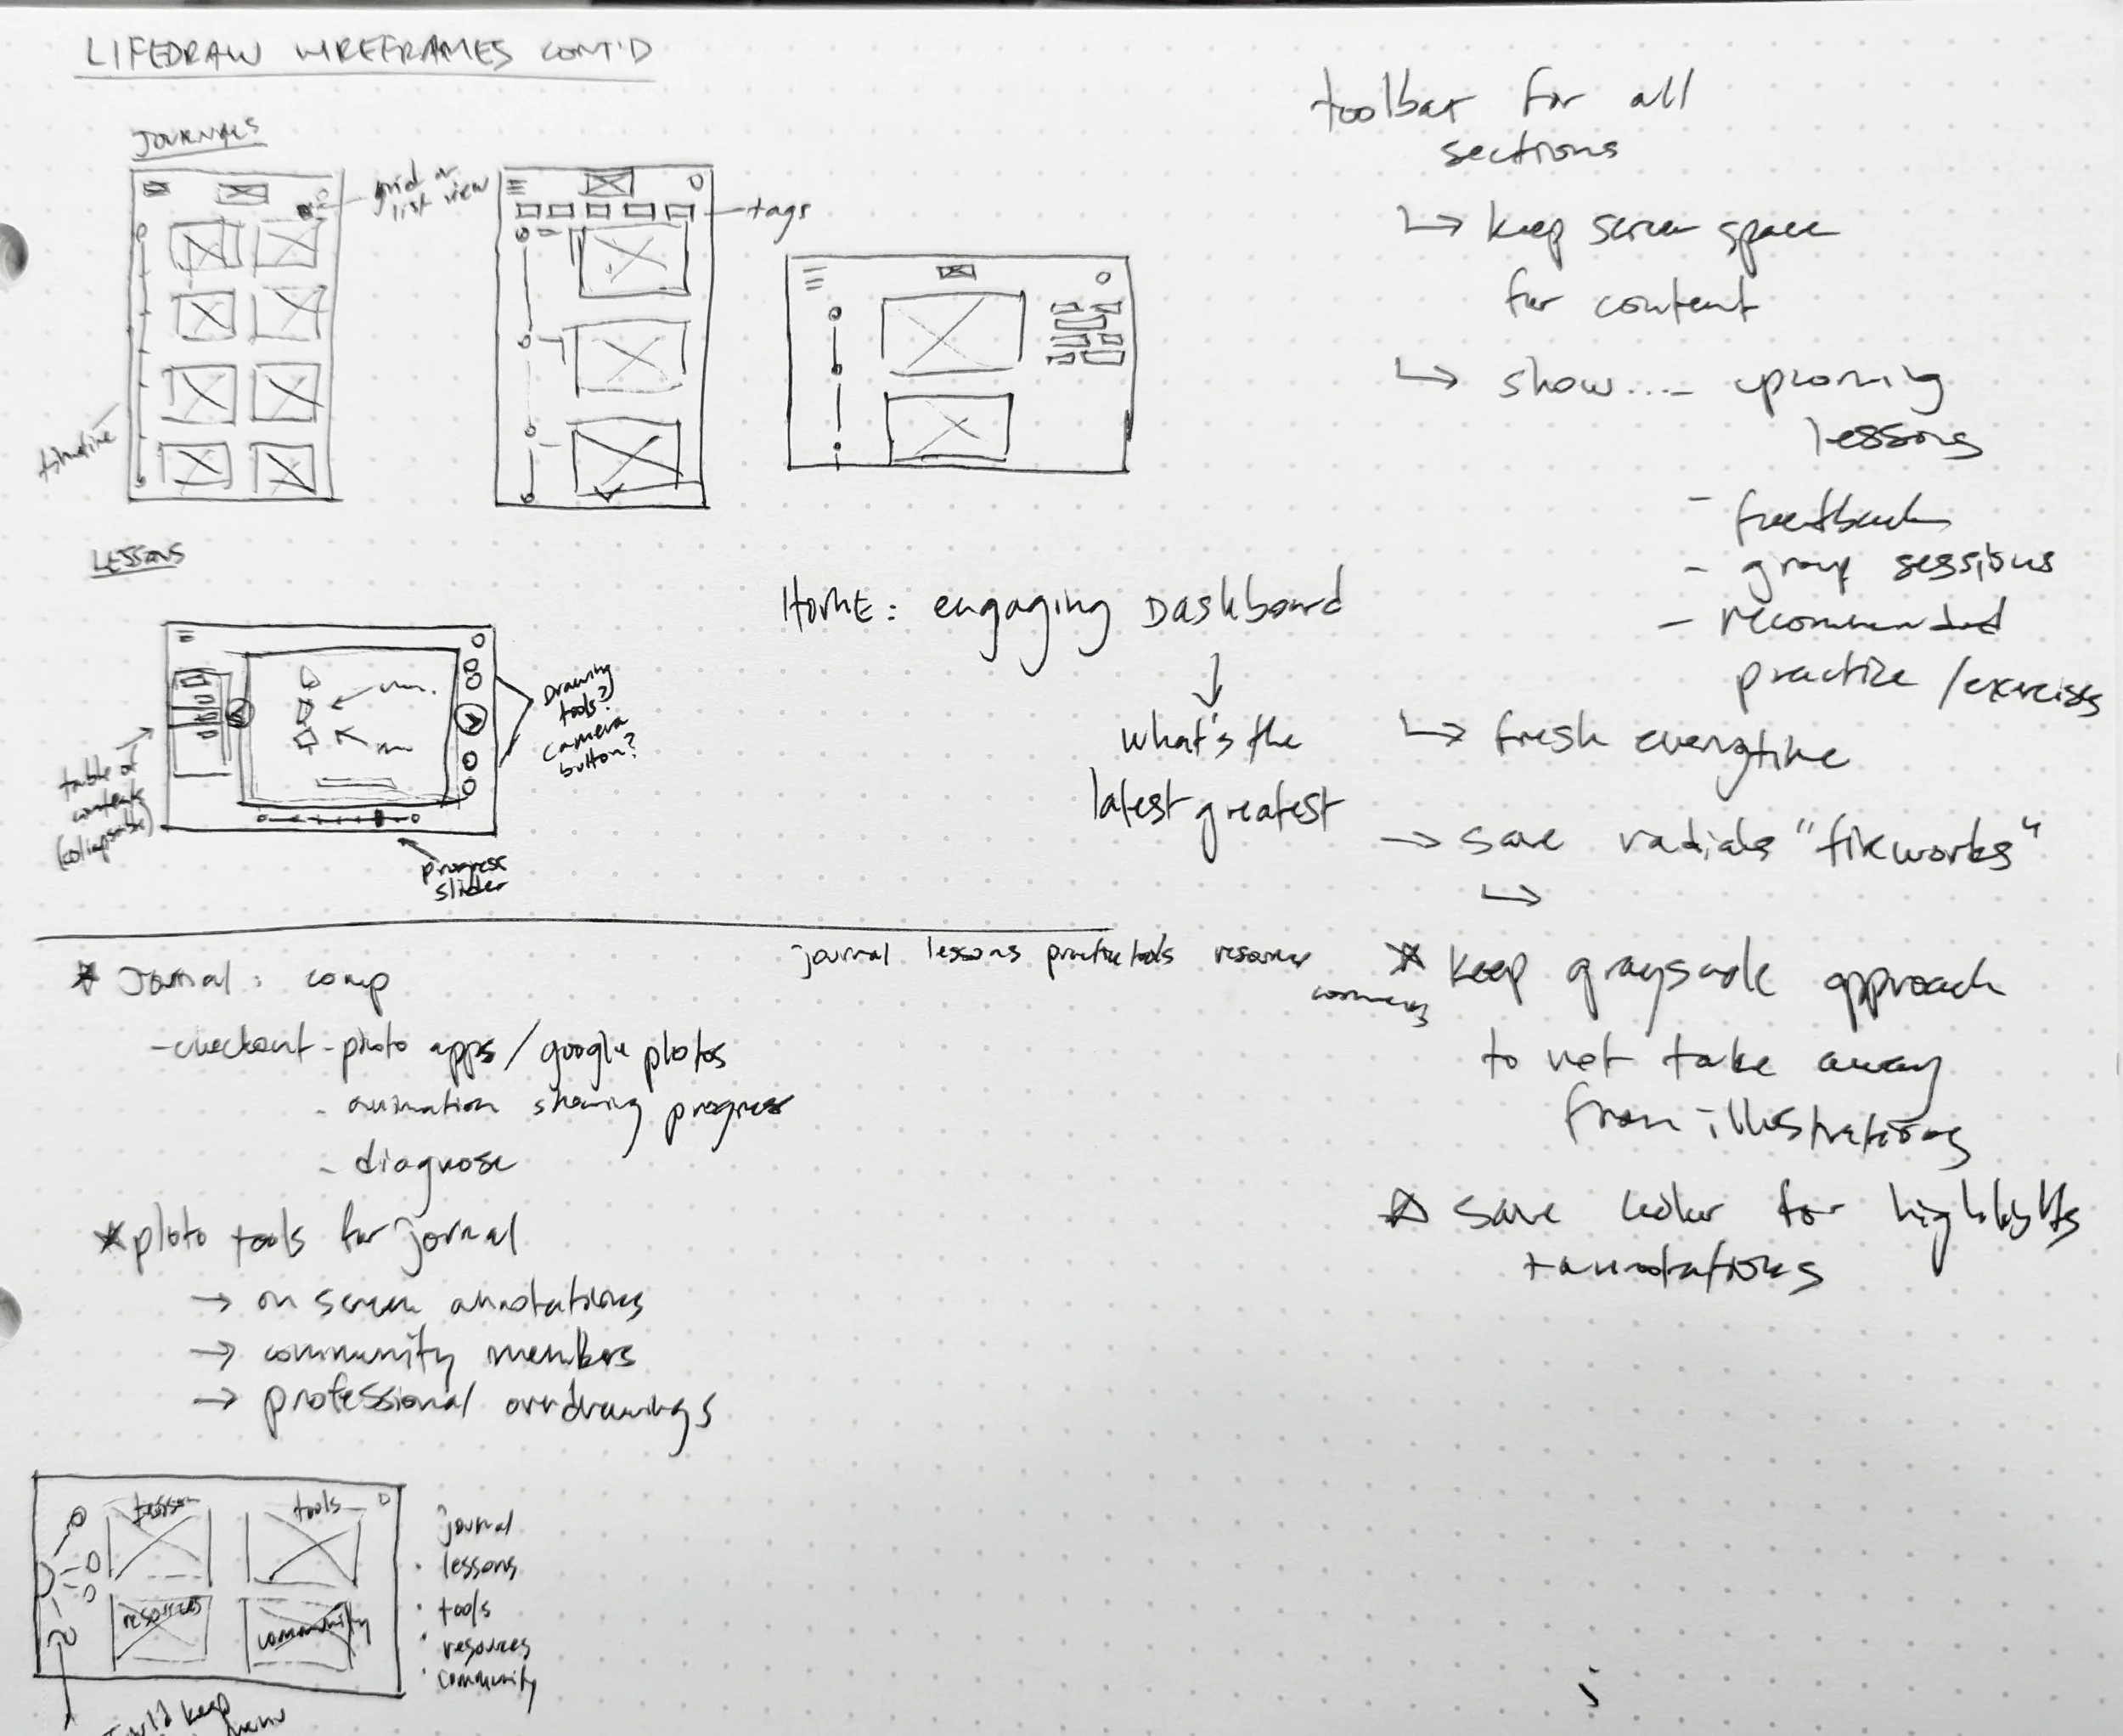 LIFEDRAW WIREFRAMES CONT'D
JOURNALS
grid or
list view
tags
timeline
LESSONS
Drawing
tools?
camera
button?
table of
contents
(collapsable)
progress
slider
Home: engaging Dashboard
what's the
latest greatest
journal lessons practice tools resources
community
* Journal: comp
- checkout - photo apps / google photos
- animation showing progress
- diagnose
* photo tools for jornal
→ on screen annotations
→ community members
→ professional overdrawings
lesson
tools
resources
community
journal
· lessons
· tools
· resources
· community
could keep
menu
toolbar for all
sections
↳ keep screen space
for content
↳ show.... upcoming
lessons
- feedback
- group sessions
- recommended
practice / exercises
↳ fresh everytime
→ save radials "fireworks"
↳
* keep grayscale approach
to not take away
from illustrations
* save color for highlights
+ annotations